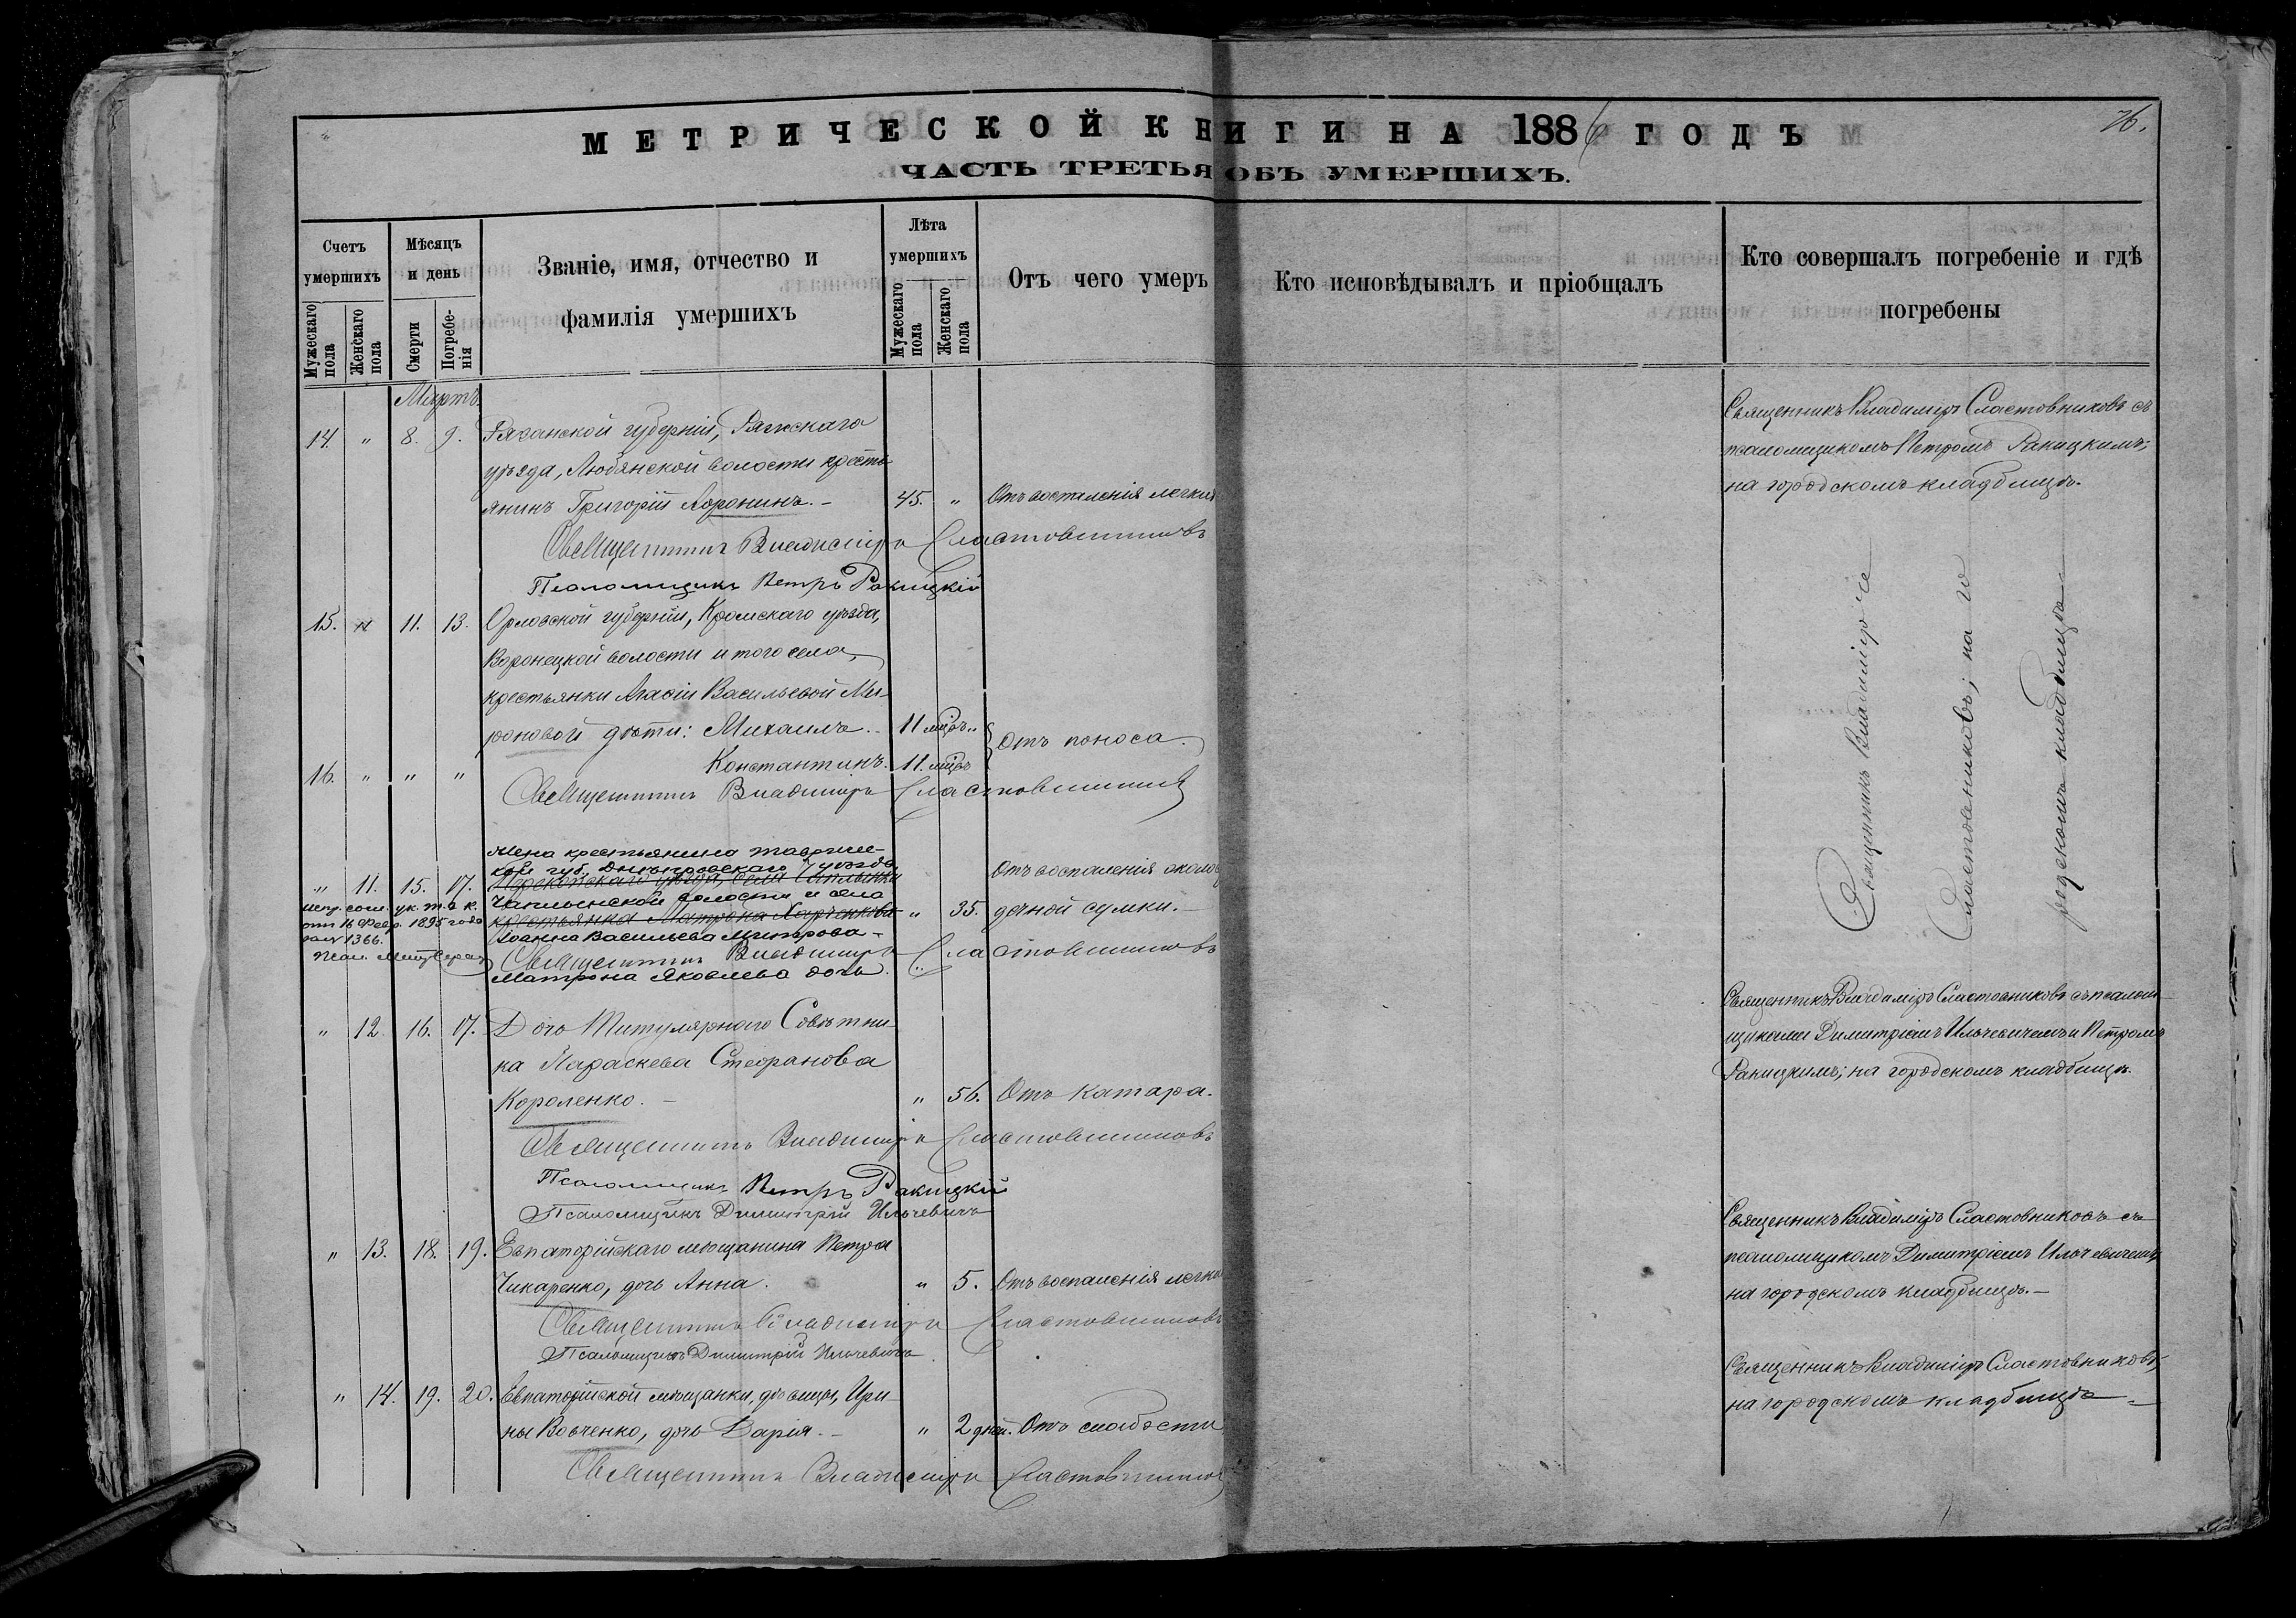 76.
МЕТРИЧЕСКОЙ КНИГИ НА 1886 ГОДЪ
ЧАСТЬ ТРЕТЬЯ ОБЪ УМЕРШИХЪ.
Счетъ умершихъ
Мужескаго пола
Женскаго пола
Мѣсяцъ и день
Смерти
Погребенія
Званіе, имя, отчество и
фамилія умершихъ
Лѣта умершихъ
Мужескаго пола
Женскаго пола
Отъ чего умеръ
Кто исповѣдывалъ и пріобщалъ
Кто совершалъ погребеніе и гдѣ
погребены
Мартъ.
14. " 8. 9. Рязанской губерніи, Ряжскаго
уѣзда, Любянской волости кресть-
янинъ Григорій Афронинъ. - 45. " Отъ воспаленія легкихъ
Священникъ Владиміръ Сластовниковъ съ
псаломщикомъ Петромъ Ракицкимъ;
на городскомъ кладбищѣ.
Священникъ Владиміръ Сластовниковъ
Псаломщикъ Петръ Ракицкій
15. " 11. 13. Орловской губерніи, Кромскаго уѣзда,
Воронецкой волости и того села,
крестьянки Агафіи Васильевой Ми-
роновой дѣти: Михаилъ. - 11 мѣс. "
16. " " " Константинъ. 11. мѣс.
Отъ поноса.
Священникъ Владиміръ Сластовниковъ
Священникъ Владиміръ Сластовниковъ; на городскомъ кладбищѣ
Жена крестьянина Тавриче-
кой губ., Днѣпровскаго уѣзда,
" 11. 15. 17. Перекопскаго уѣзда, села Чаплынки
Чаплынской волости и села
крестьянка Матрона Харченкова " 35. Отъ воспаленія около
дечной сумки. -
Иоанна Васильева
Испр. согл. ук. т. д. к.
отъ 16 Февр. 1895 года
за № 1366.
Священникъ Владиміръ Сластовниковъ
Матрона Яковлева дочь.
" 12. 16. 17. Дочь Титулярнаго Совѣтни-
ка Параскева Стефанова
Короленко. - " 56. Отъ катара.
Священникъ Владиміръ Сластовниковъ съ псалом-
щиками Димитріемъ Ильчевичемъ и Петромъ
Ракицкимъ; на городскомъ кладбищѣ.
Священникъ Владиміръ Сластовниковъ
Псаломщикъ Петръ Ракицкій
Псаломщикъ Димитрій Ильчевичъ
" 13. 18. 19. Евпаторійскаго мѣщанина Петра
Чикаренко, дочь Анна. " 5. Отъ воспаленія легкихъ
Священникъ Владиміръ Сластовниковъ съ
псаломщикомъ Димитріемъ Ильчевичемъ,
на городскомъ кладбищѣ. -
Священникъ Владиміръ Сластовниковъ
Псаломщикъ Димитрій Ильчевичъ
" 14. 19. 20. Евпаторійской мѣщанки, дѣвицы, Ири-
ны Вовченко, дочь Дарія. - " 2 дней. Отъ слабости
Священникъ Владиміръ Сластовниковъ,
на городскомъ кладбищѣ -
Священникъ Владиміръ Сластовниковъ